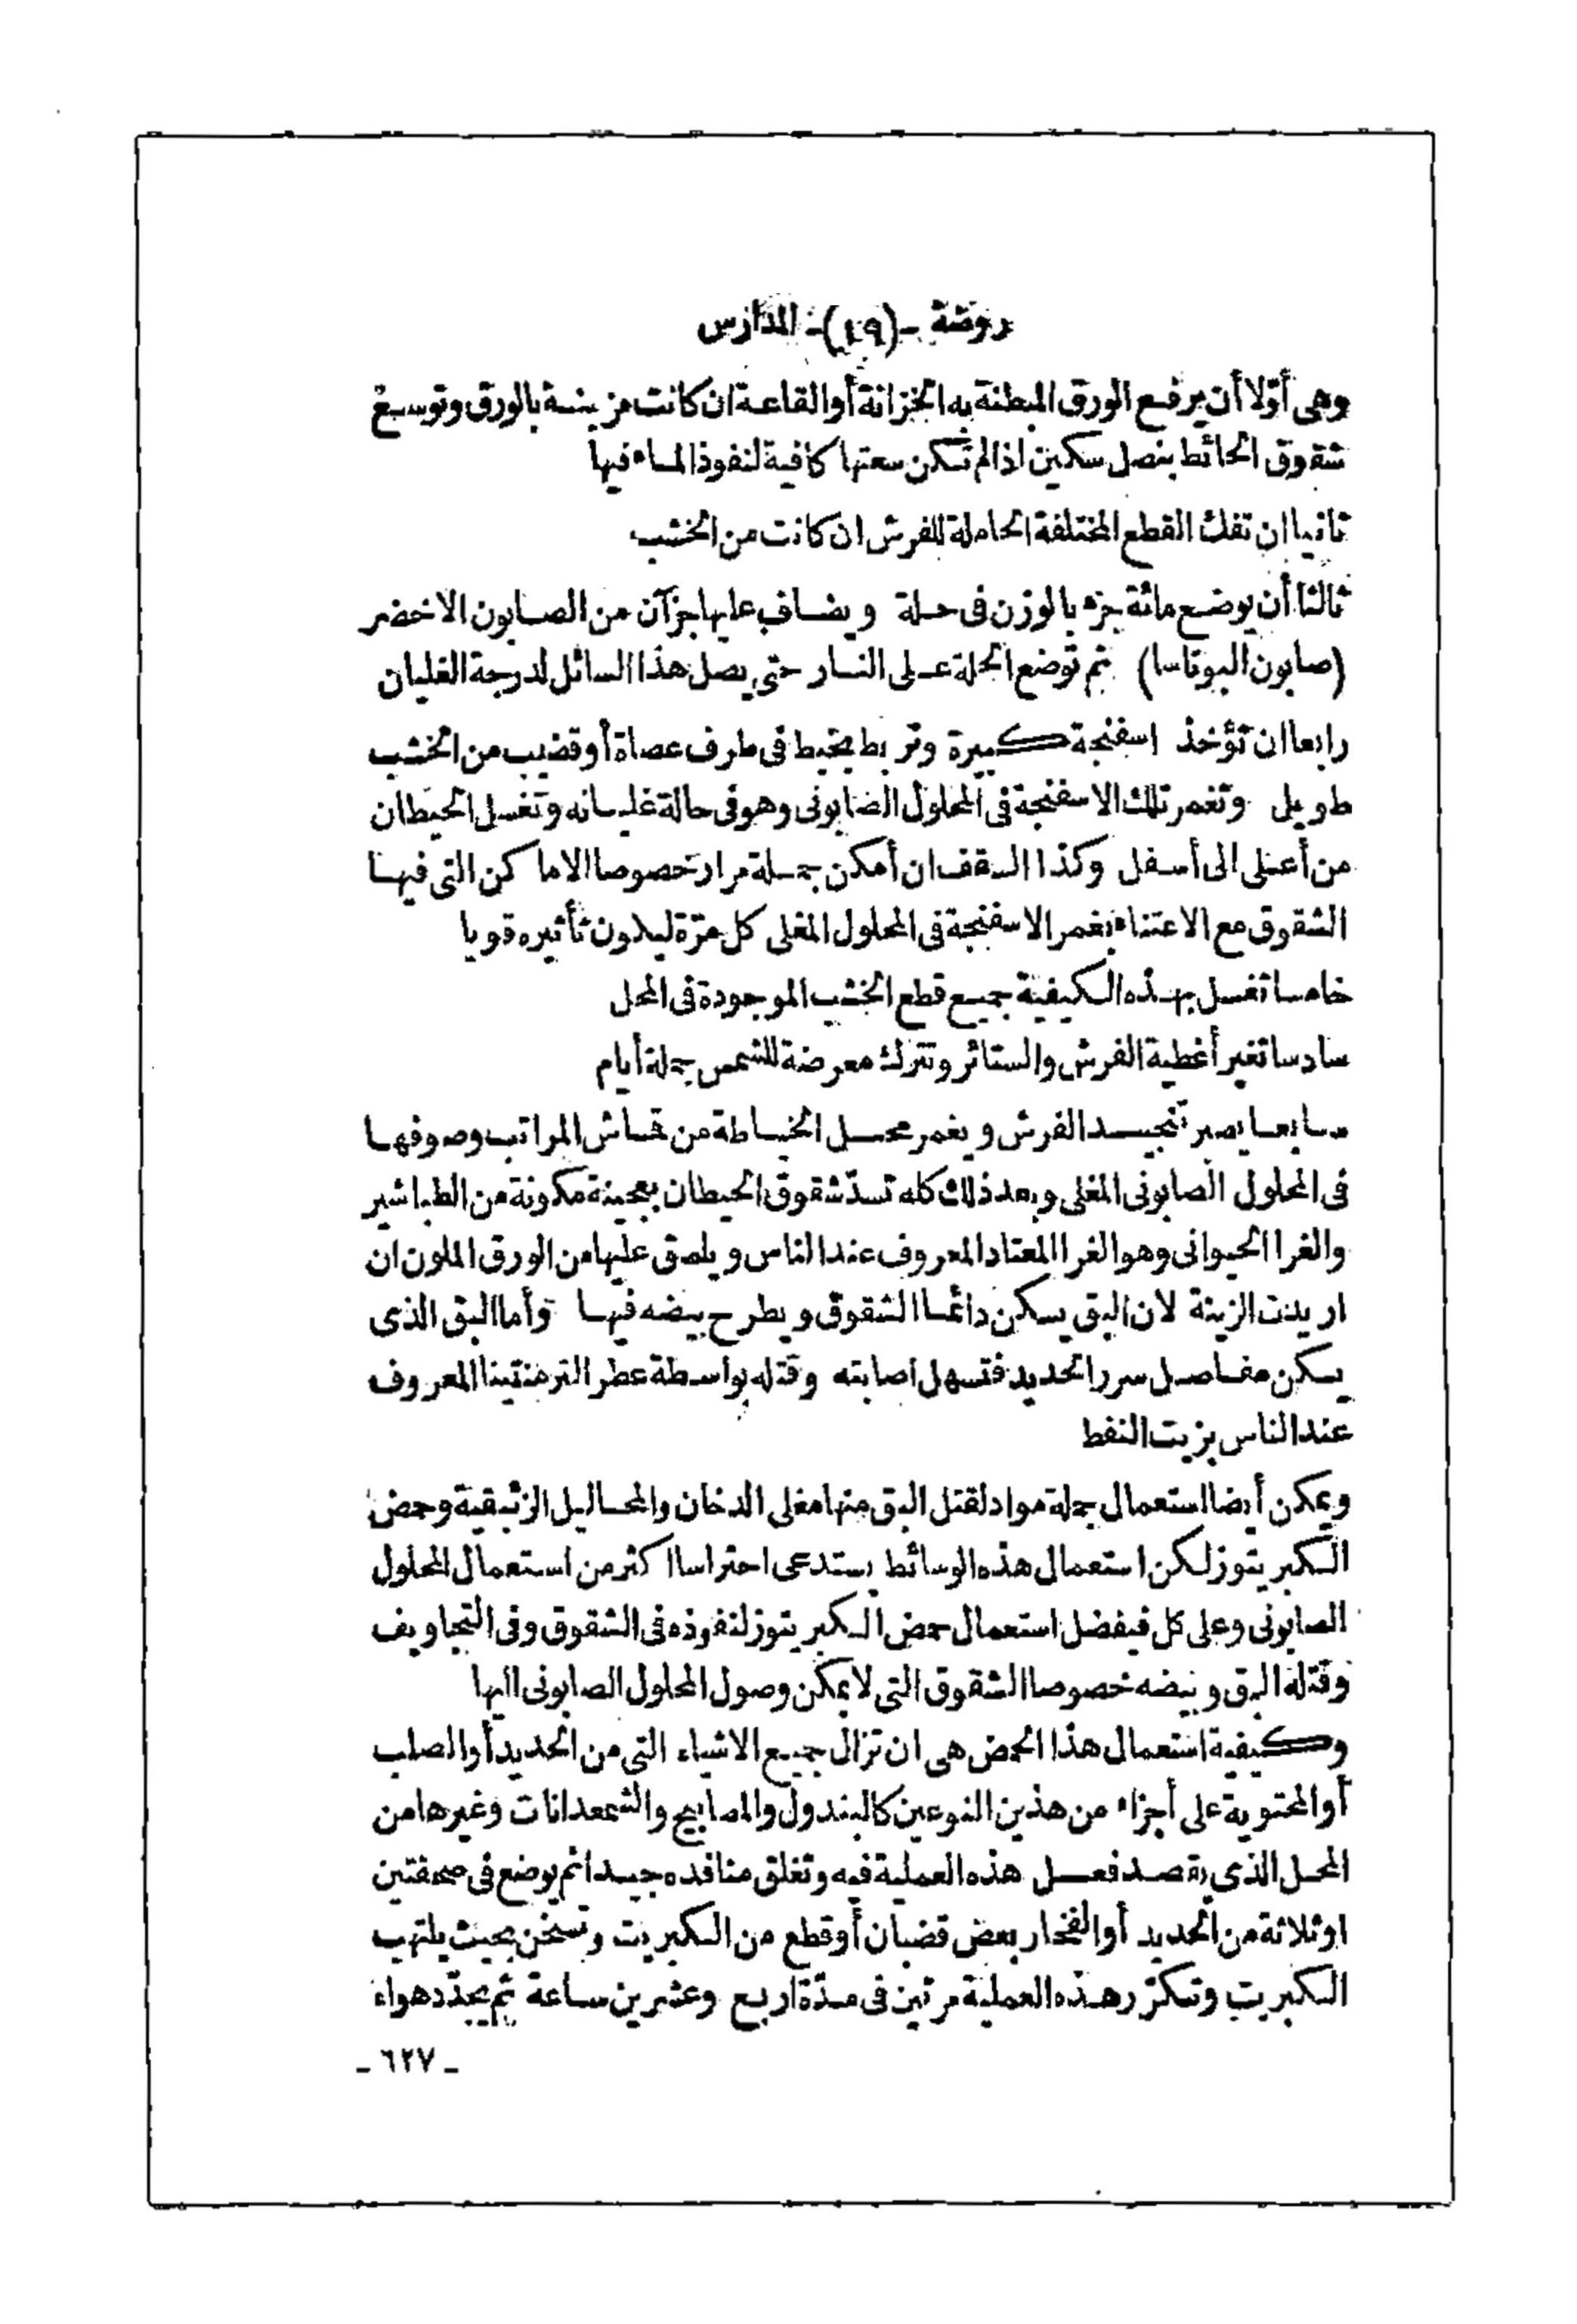 روضة -(١٩)- المدارس
وهى أوّلا أن يرفع الورق المبطنة به الخزانة أو القاعة ان كانت مزينة بالورق وتوسيع
شقوق الحائط بنصل سكين اذا لم تكن سعتها كافية لنفوذ الماء فيها
ثانيا ان تفك القطع المختلفة الحاملة للفرش ان كانت من الخشب
ثالثا أن يوضع مائة جزء بالوزن فى حلة ويضاف عليها جزآن من الصابون الاخضر
(صابون البوتاسا) ثم توضع الحلة على النار حتى يصل هذا السائل لدرجة الغليان
رابعا ان تؤخذ اسفنجة كبيرة وتربط بخيط فى طرف عصاة أو قضيب من الخشب
طويل وتغمر تلك الاسفنجة فى المحلول الصابونى وهو فى حالة غليانه وتغسل الحيطان
من أعلى الى أسفل وكذا السقف ان أمكن جملة مرار خصوصا الاماكن التى فيها
الشقوق مع الاعتناء بغمر الاسفنجة فى المحلول المغلى كل مرّة ليكون تأثيره قويا
خامسا تغسل بهذه الكيفية جميع قطع الخشب الموجودة فى المحل
سادسا تغير أغطية الفرش والستائر وتترك معرضة للشمس جملة أيام
سابعا يصير تنجيد الفرش ويغمر محل الخياطة من قماش المراتب وصوفها
فى المحلول الصابونى المغلى وبعد ذلك كله تسدّ شقوق الحيطان بعجينة مكونة من الطباشير
والغرا الحيوانى وهو الغرا المعتاد المعروف عند الناس ويلصق عليها من الورق الملون ان
اريدت الزينة لان البق يسكن دائما الشقوق ويطرح بيضه فيها وأما البق الذى
يسكن مفاصل سرر الحديد فتسهل اصابته وقتله بواسطة عطر الترمنتينا المعروف
عند الناس بزيت النفط
ويمكن أيضا استعمال جملة مواد لقتل البق منها مغلى الدخان والمحاليل الزئبقية وحمض
الكبريتوز لكن استعمال هذه الوسائط يستدعى احتراسا اكثر من استعمال المحلول
الصابونى وعلى كل فيفضل استعمال حمض الكبريتوز لنفوذه فى الشقوق وفى التجاويف
وقتله البق وبيضه خصوصا الشقوق التى لا يمكن وصول المحلول الصابونى اليها
وكيفية استعمال هذا الحمض هى ان تزال جميع الاشياء التى من الحديد أو الصلب
أو المحتوية على أجزاء من هذين النوعين كالبندول والمصابيح والشمعدانات وغيرها من
المحل الذى يقصد فعل هذه العملية فيه وتغلق منافذه جيدا ثم يوضع فى صحفتين
او ثلاثة من الحديد أو الفخار بعض قضبان أو قطع من الكبريت وتسخن بحيث يلتهب
الكبريت وتكرّر هذه العملية مرتين فى مدّة اربع وعشرين ساعة ثم يجدّد هواء
- ٦٢٧ -